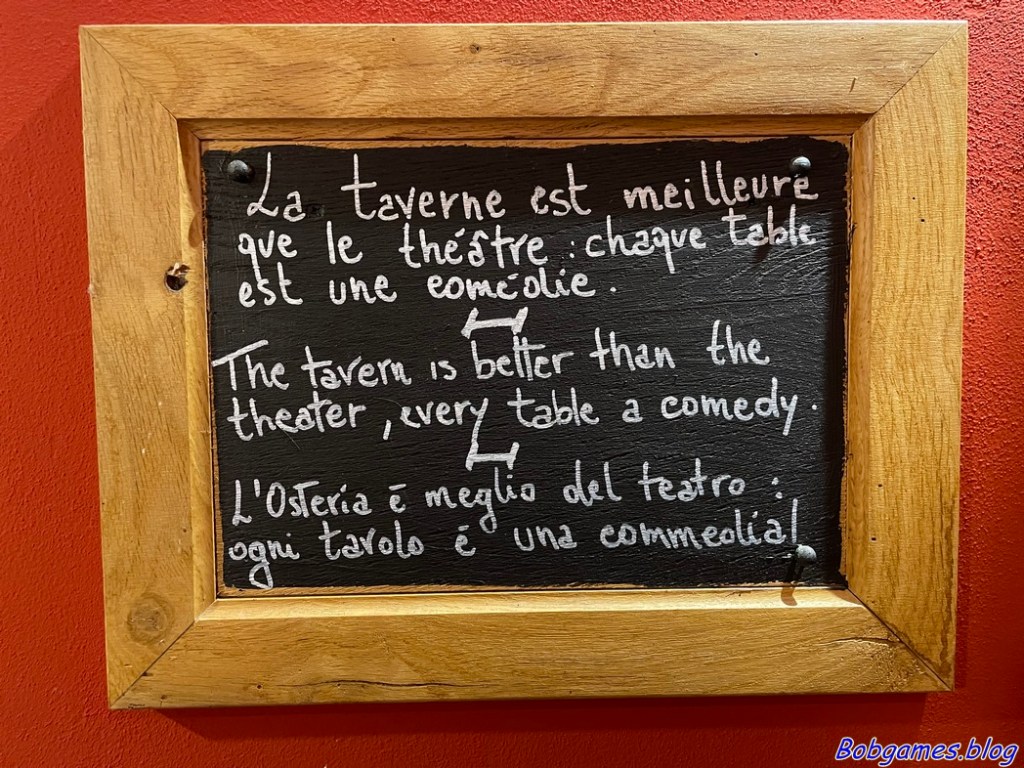 La taverne est meilleure
que le théâtre : chaque table
est une comédie.
The tavern is better than the
theater, every table a comedy.
L'Osteria é meglio del teatro :
ogni tavolo é una commedia!
Bobgames.blog